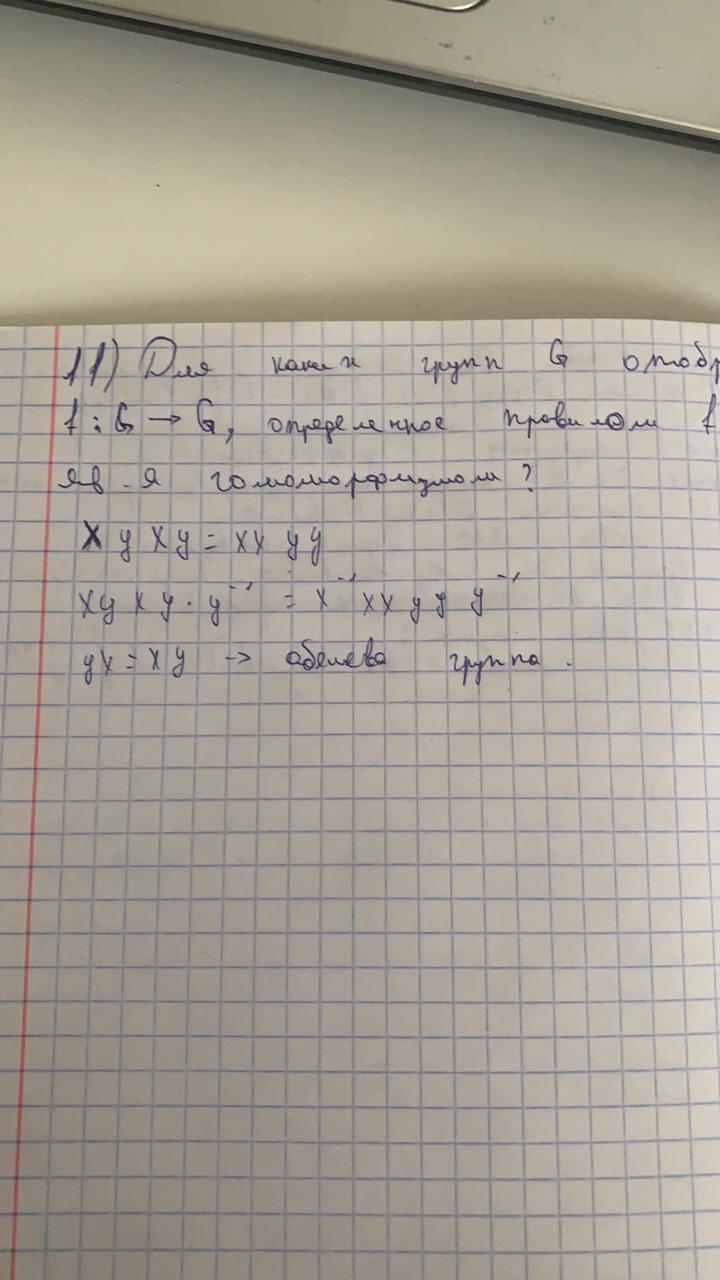 11) Для каких групп G отобр
f : G → G, определенное правилом f
яв-я гомоморфизмом?
x y x y = x x y y
x y x y · y⁻¹ = x⁻¹ x x y y y⁻¹
y x = x y → абелева группа.